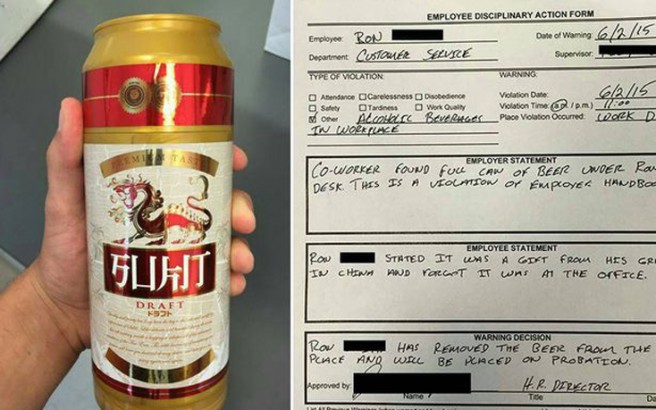 PREMIUM TASTE
SUHIT
DRAFT
ドラフト
EMPLOYEE DISCIPLINARY ACTION FORM
Employee: RON
Date of Warning: 6/2/15
Department: CUSTOMER SERVICE
Supervisor:
TYPE OF VIOLATION:
WARNING:
Attendance Carelessness Disobedience
Violation Date: 6/2/15
Safety Tardiness Work Quality
Violation Time: (a.m. / p.m.) 11:00
Other ALCOHOLIC BEVERAGES
Place Violation Occurred: WORK D
IN WORKPLACE
EMPLOYER STATEMENT
CO-WORKER FOUND FULL CAN OF BEER UNDER RON
DESK. THIS IS A VIOLATION OF EMPLOYEE HANDBOO
EMPLOYEE STATEMENT
RON STATED IT WAS A GIFT FROM HIS GR
IN CHINA AND FORGOT IT WAS AT THE OFFICE.
WARNING DECISION
RON HAS REMOVED THE BEER FROM THE
PLACE AND WILL BE PLACED ON PROBATION.
Approved by: H.R. DIRECTOR
Name Title Da